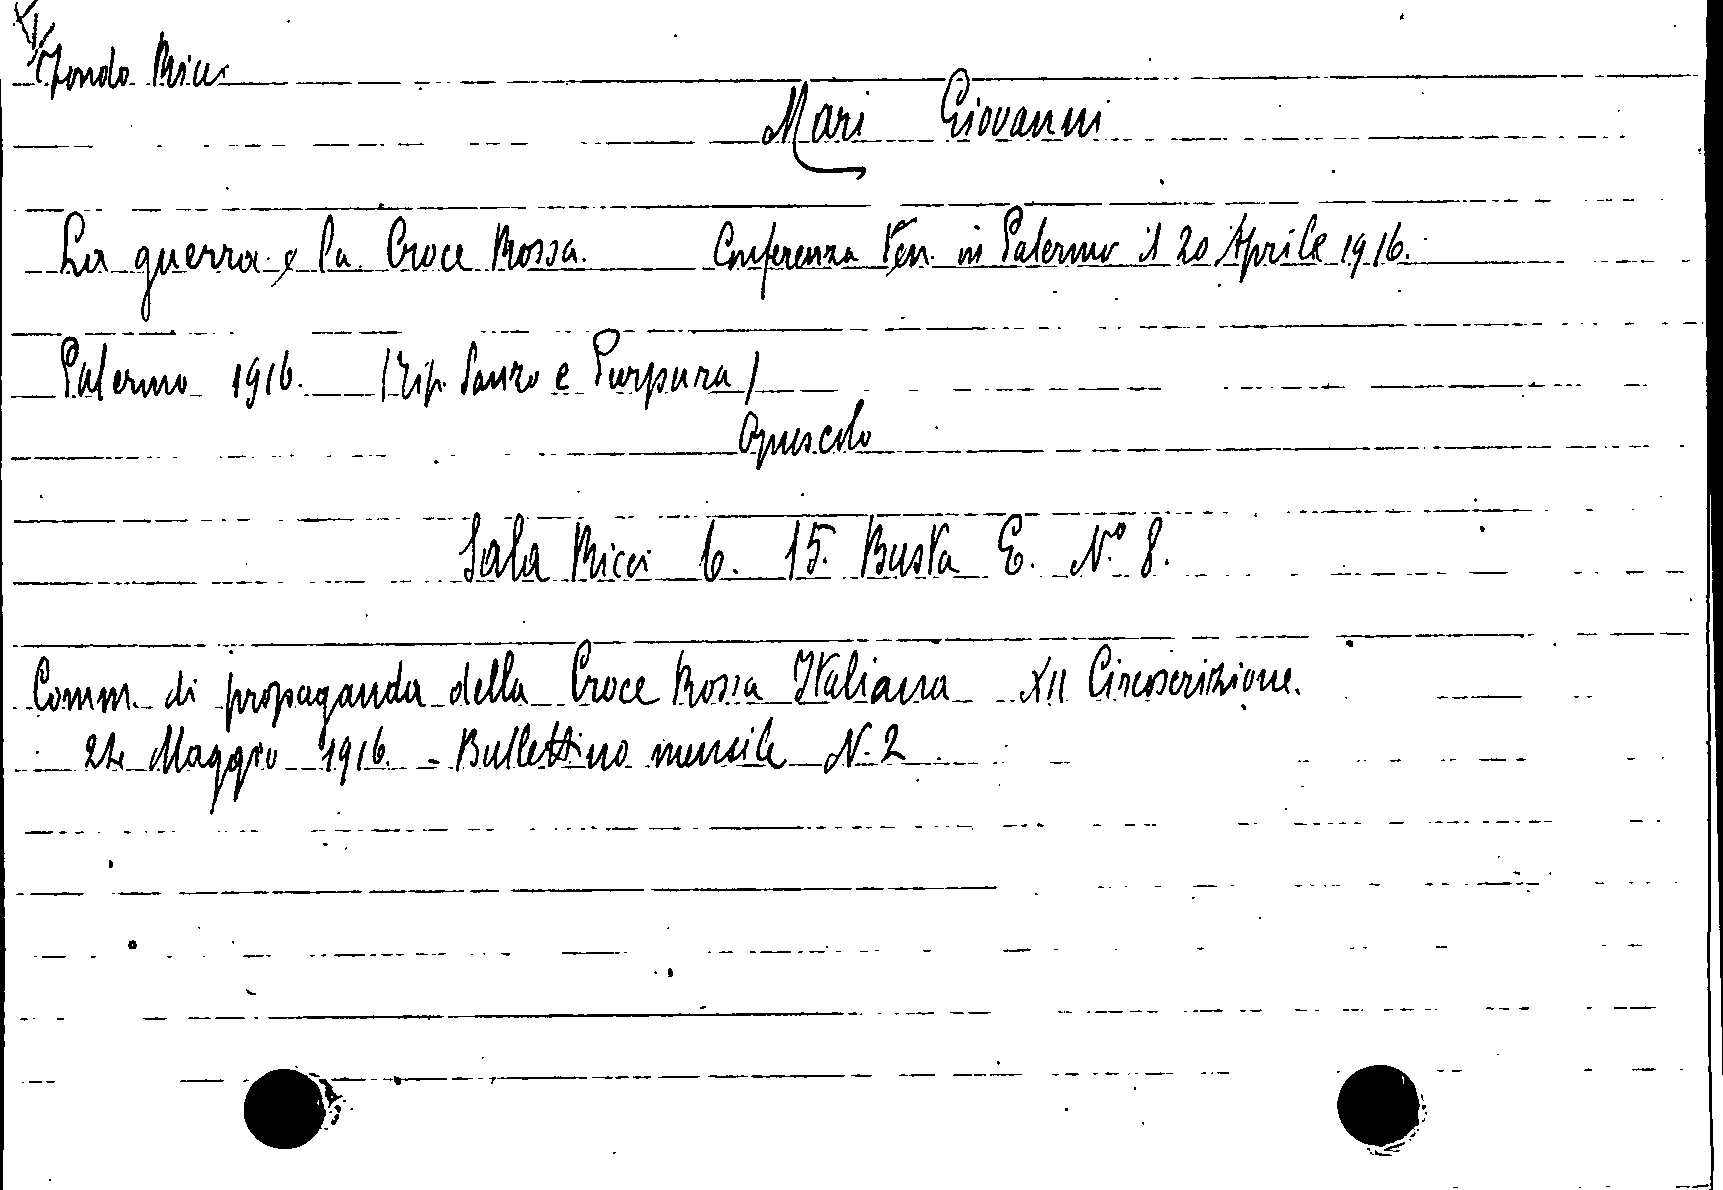 Fondo Ricci
Mari Giovanni
La guerra e la Croce Rossa. Conferenza ten. in Palermo il 20 Aprile 1916.
Palermo 1916. (Tip. Sanzo e Purpura)
Opuscolo
Sala Ricci 6. 15. Busta E. N.° 8.
Comm. di propaganda della Croce Rossa Italiana XII Circoscrizione.
24 Maggio 1916. - Bullettino mensile N. 2